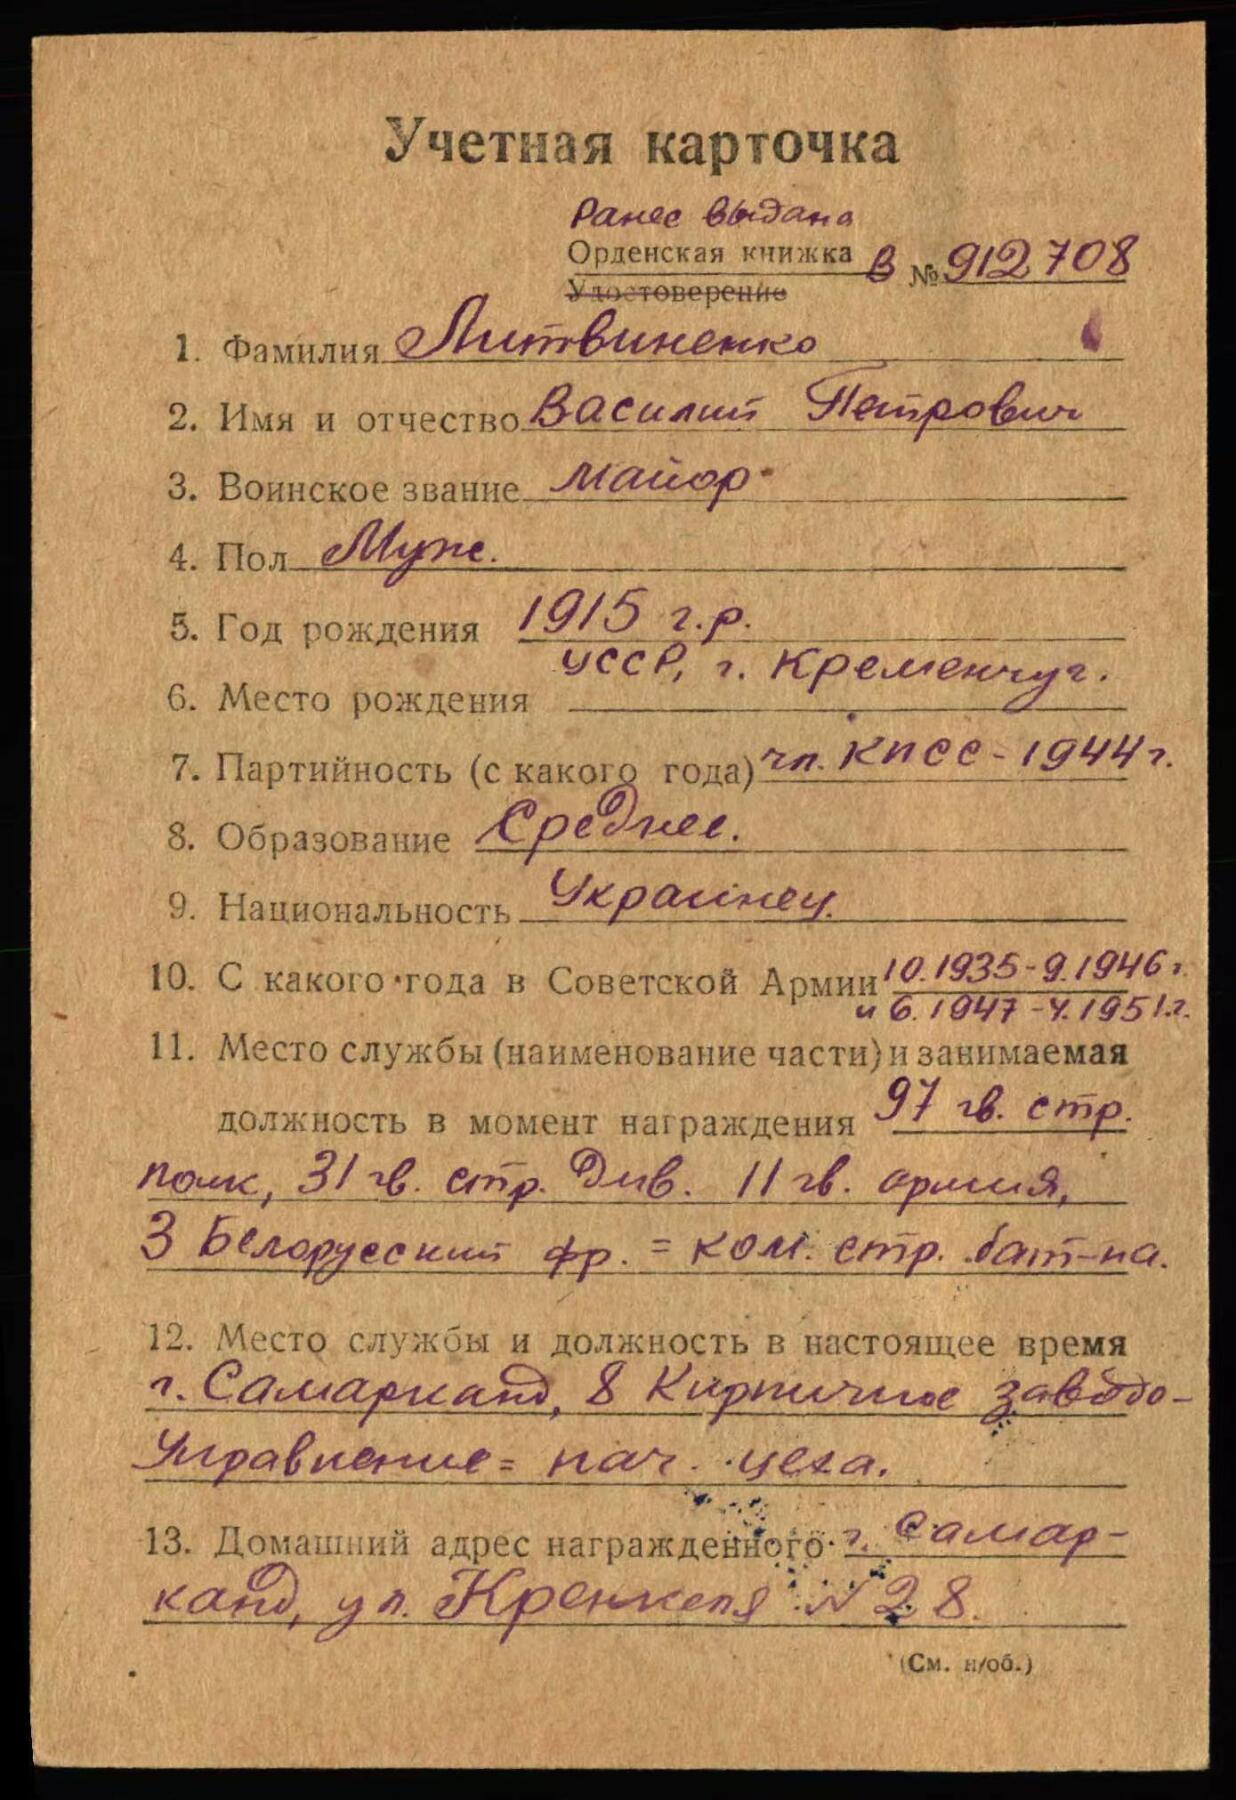 Учетная карточка
Ранее выдана
Орденская книжка В № 912708
Удостоверение
1. Фамилия Литвиненко
2. Имя и отчество Василий Петрович
3. Воинское звание майор
4. Пол Муж.
5. Год рождения 1915 г.р.
УССР, г. Кременчуг.
6. Место рождения
7. Партийность (с какого года) чл. КПСС - 1944 г.
8. Образование Среднее.
9. Национальность Украинец.
10. С какого года в Советской Армии 10.1935-9.1946 г.
и 6.1947-4.1951.г.
11. Место службы (наименование части) и занимаемая
должность в момент награждения 97 гв. стр.
полк, 31 гв. стр. див. 11 гв. армия,
3 Белорусский фр. = ком. стр. бат-на.
12. Место службы и должность в настоящее время
г. Самарканд, 8 Кирпичное заводо-
управление = нач. цеха.
13. Домашний адрес награжденного г. Самар-
канд, ул. Кренкеля № 28.
(См. н/об.)